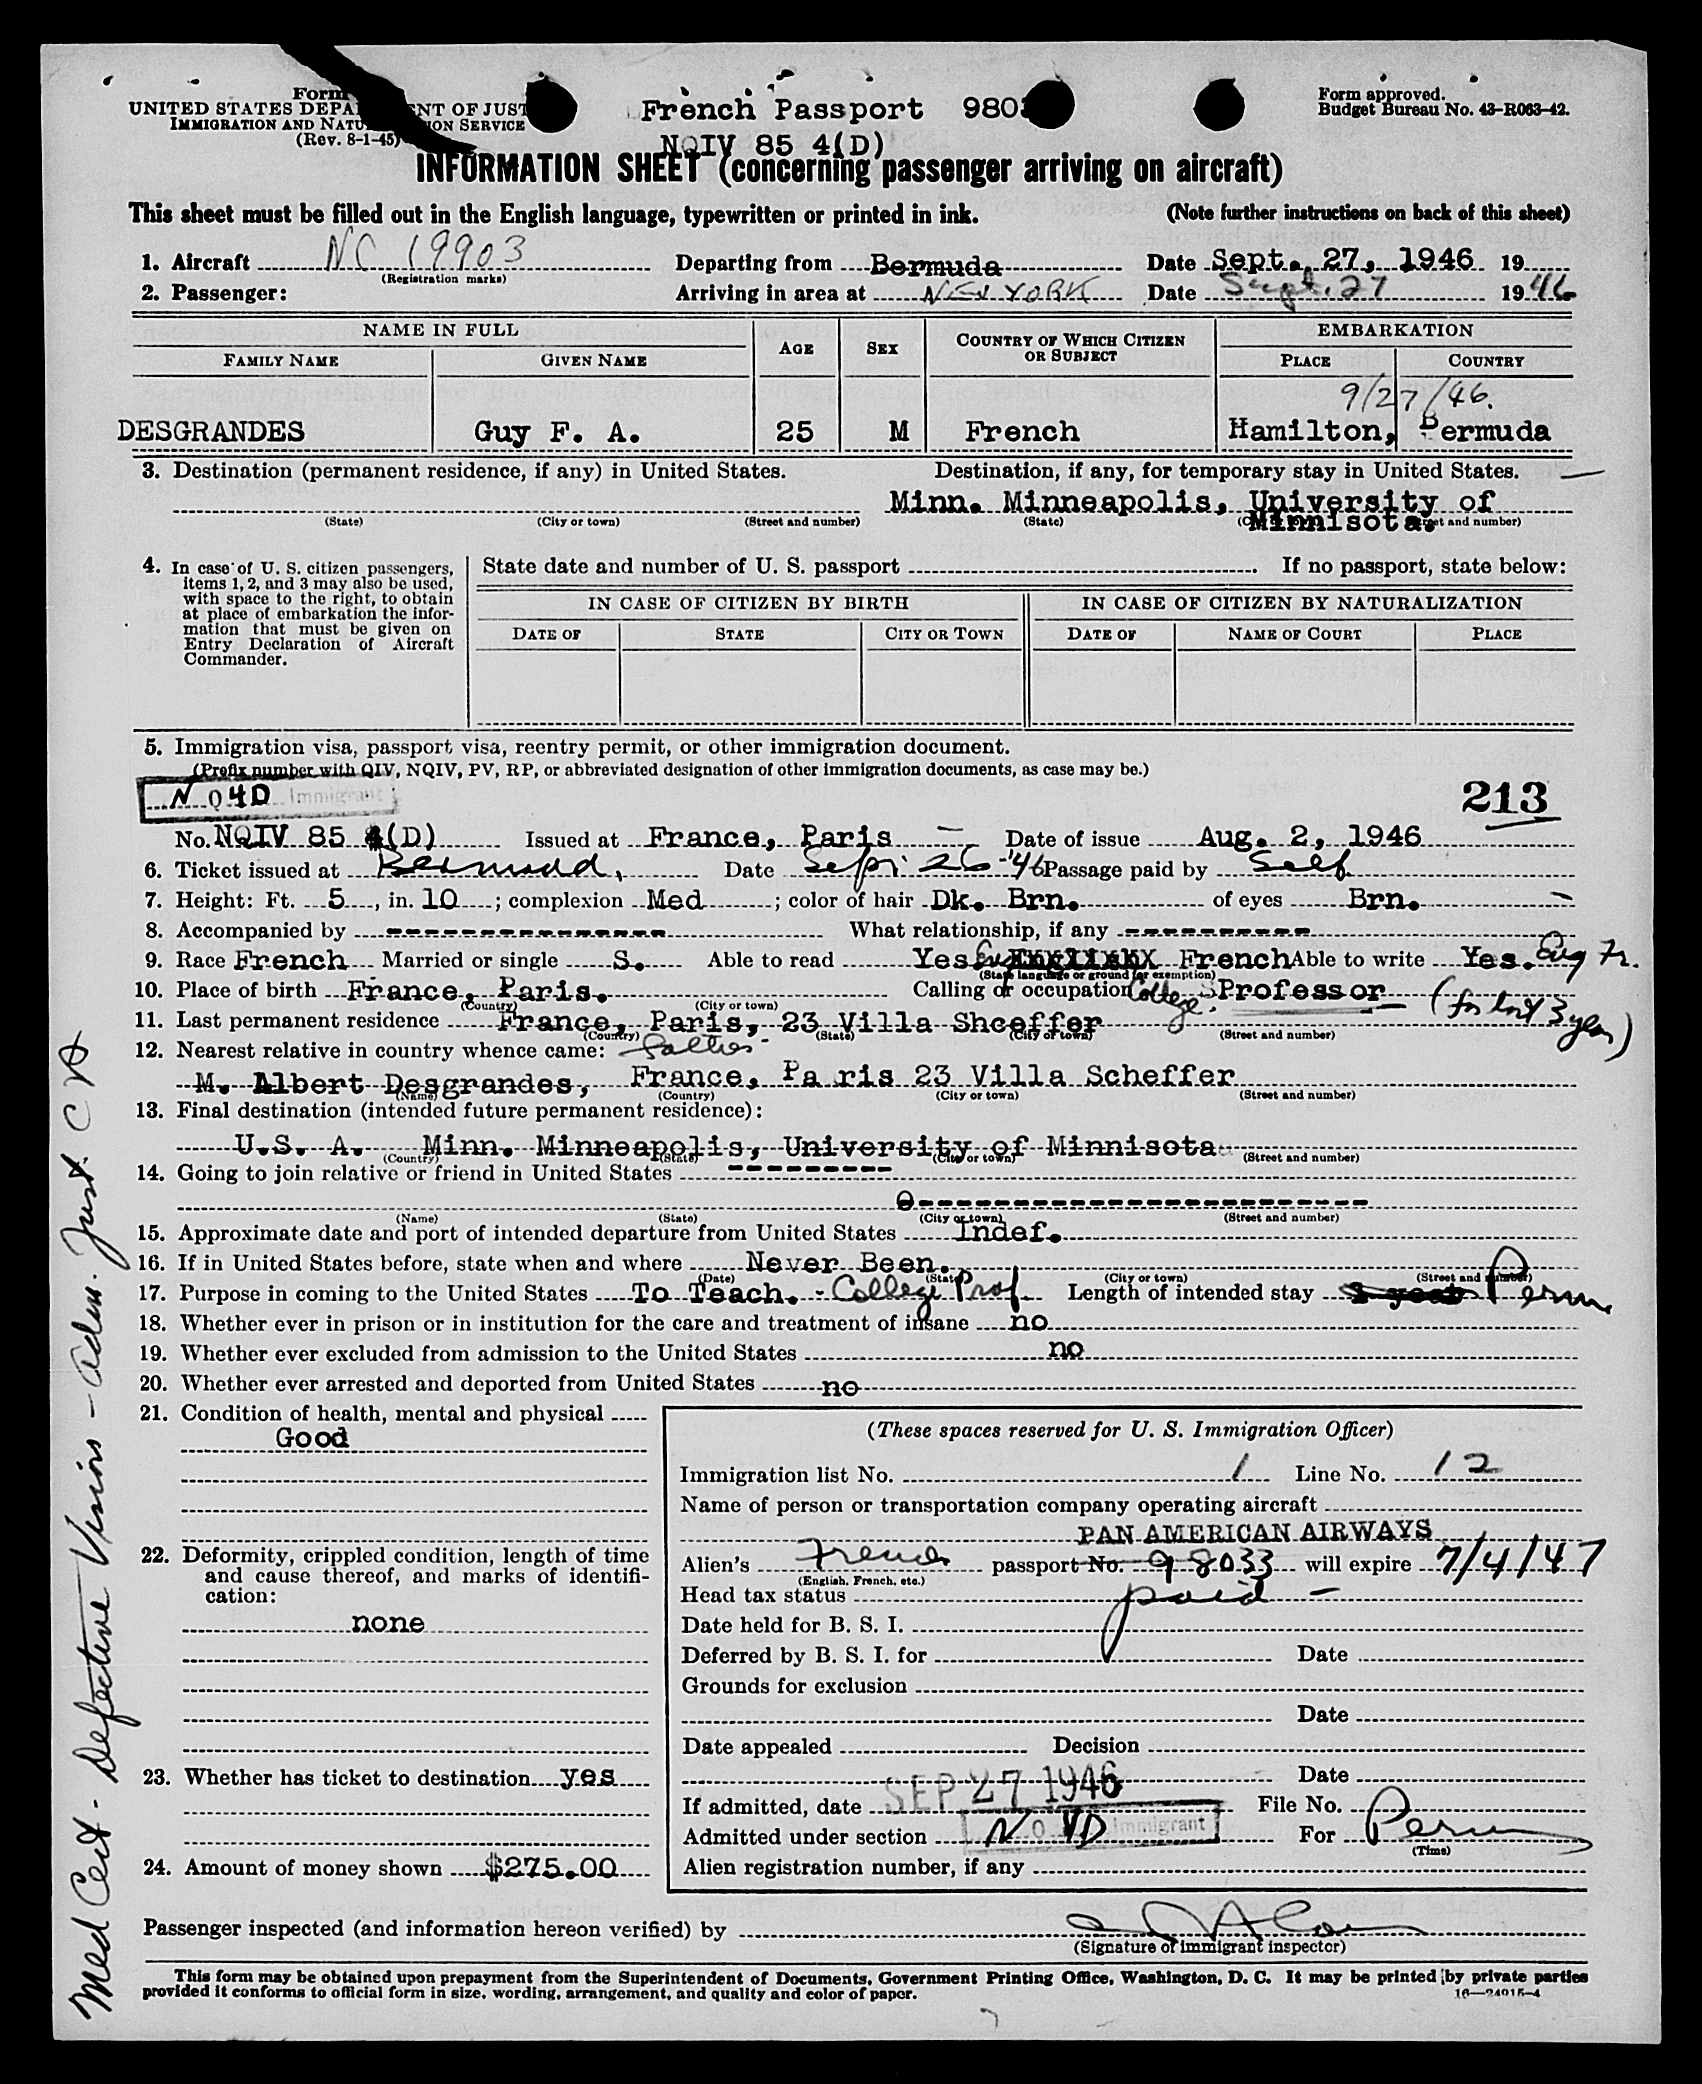 Form
UNITED STATES DEPA NT OF JUST
IMMIGRATION AND NATU ON SERVICE
(Rev. 8-1-45)
French Passport 980
NQIV 85 4(D)
Form approved.
Budget Bureau No. 43-R063-42.
INFORMATION SHEET (concerning passenger arriving on aircraft)
This sheet must be filled out in the English language, typewritten or printed in ink. (Note further instructions on back of this sheet)
1. Aircraft NC 19903 Departing from Bermuda Date Sept. 27, 1946 19
(Registration marks)
2. Passenger: Arriving in area at NEW YORK Date Sept. 27 1946
NAME IN FULL AGE SEX COUNTRY OF WHICH CITIZEN OR SUBJECT EMBARKATION
FAMILY NAME GIVEN NAME PLACE COUNTRY
9/27/46.
DESGRANDES Guy F. A. 25 M French Hamilton, Bermuda
3. Destination (permanent residence, if any) in United States. Destination, if any, for temporary stay in United States. —
Minn. Minneapolis, University of
(State) (City or town) (Street and number) (State) Minnisota. (Street and number)
4. In case of U. S. citizen passengers, items 1, 2, and 3 may also be used, with space to the right, to obtain at place of embarkation the information that must be given on Entry Declaration of Aircraft Commander.
State date and number of U. S. passport If no passport, state below:
IN CASE OF CITIZEN BY BIRTH IN CASE OF CITIZEN BY NATURALIZATION
DATE OF STATE CITY OR TOWN DATE OF NAME OF COURT PLACE
5. Immigration visa, passport visa, reentry permit, or other immigration document.
(Prefix number with QIV, NQIV, PV, RP, or abbreviated designation of other immigration documents, as case may be.)
N Q 4D Immigrant
213
No. NQIV 85 4(D) Issued at France, Paris Date of issue Aug. 2, 1946
6. Ticket issued at Bermuda, Date Sept 26-'46 Passage paid by Self
7. Height: Ft. 5, in. 10; complexion Med; color of hair Dk. Brn. of eyes Brn.
8. Accompanied by ---------------- What relationship, if any -----------
9. Race French Married or single S. Able to read Yes Eng French Able to write Yes. Eng Fr.
(State language or ground for exemption)
10. Place of birth France, Paris. Calling or occupation College Professor (for last 3 years)
(Country) (City or town)
11. Last permanent residence France, Paris, 23 Villa Shceffer
(Country) (State) (City or town) (Street and number)
12. Nearest relative in country whence came: father
M. Albert Desgrandes, France, Paris 23 Villa Scheffer
(Name) (Country) (City or town) (Street and number)
13. Final destination (intended future permanent residence):
U.S. A. Minn. Minneapolis, University of Minnisota
(Country) (State) (City or town) (Street and number)
14. Going to join relative or friend in United States ----------
(Name) (State) (City or town) (Street and number)
15. Approximate date and port of intended departure from United States Indef.
16. If in United States before, state when and where Never Been.
(Date) (State) (City or town) (Street and number)
17. Purpose in coming to the United States To Teach. - College Prof. Length of intended stay Perm
18. Whether ever in prison or in institution for the care and treatment of insane no
19. Whether ever excluded from admission to the United States no
20. Whether ever arrested and deported from United States no
21. Condition of health, mental and physical
Good
22. Deformity, crippled condition, length of time and cause thereof, and marks of identification:
none
23. Whether has ticket to destination yes
24. Amount of money shown $275.00
(These spaces reserved for U. S. Immigration Officer)
Immigration list No. 1 Line No. 12
Name of person or transportation company operating aircraft
PAN AMERICAN AIRWAYS
Alien's French passport No. 98033 will expire 7/4/47
(English, French, etc.)
Head tax status paid -
Date held for B. S. I.
Deferred by B. S. I. for Date
Grounds for exclusion
Date
Date appealed Decision
Date
If admitted, date SEP 27 1946 File No.
Admitted under section N Q IVD Immigrant For Perm
(Time)
Alien registration number, if any
Passenger inspected (and information hereon verified) by
(Signature of immigrant inspector)
This form may be obtained upon prepayment from the Superintendent of Documents, Government Printing Office, Washington, D. C. It may be printed by private parties
provided it conforms to official form in size, wording, arrangement, and quality and color of paper.
16—24015-4
Med Cert. Defective Vision - Adm. Just.